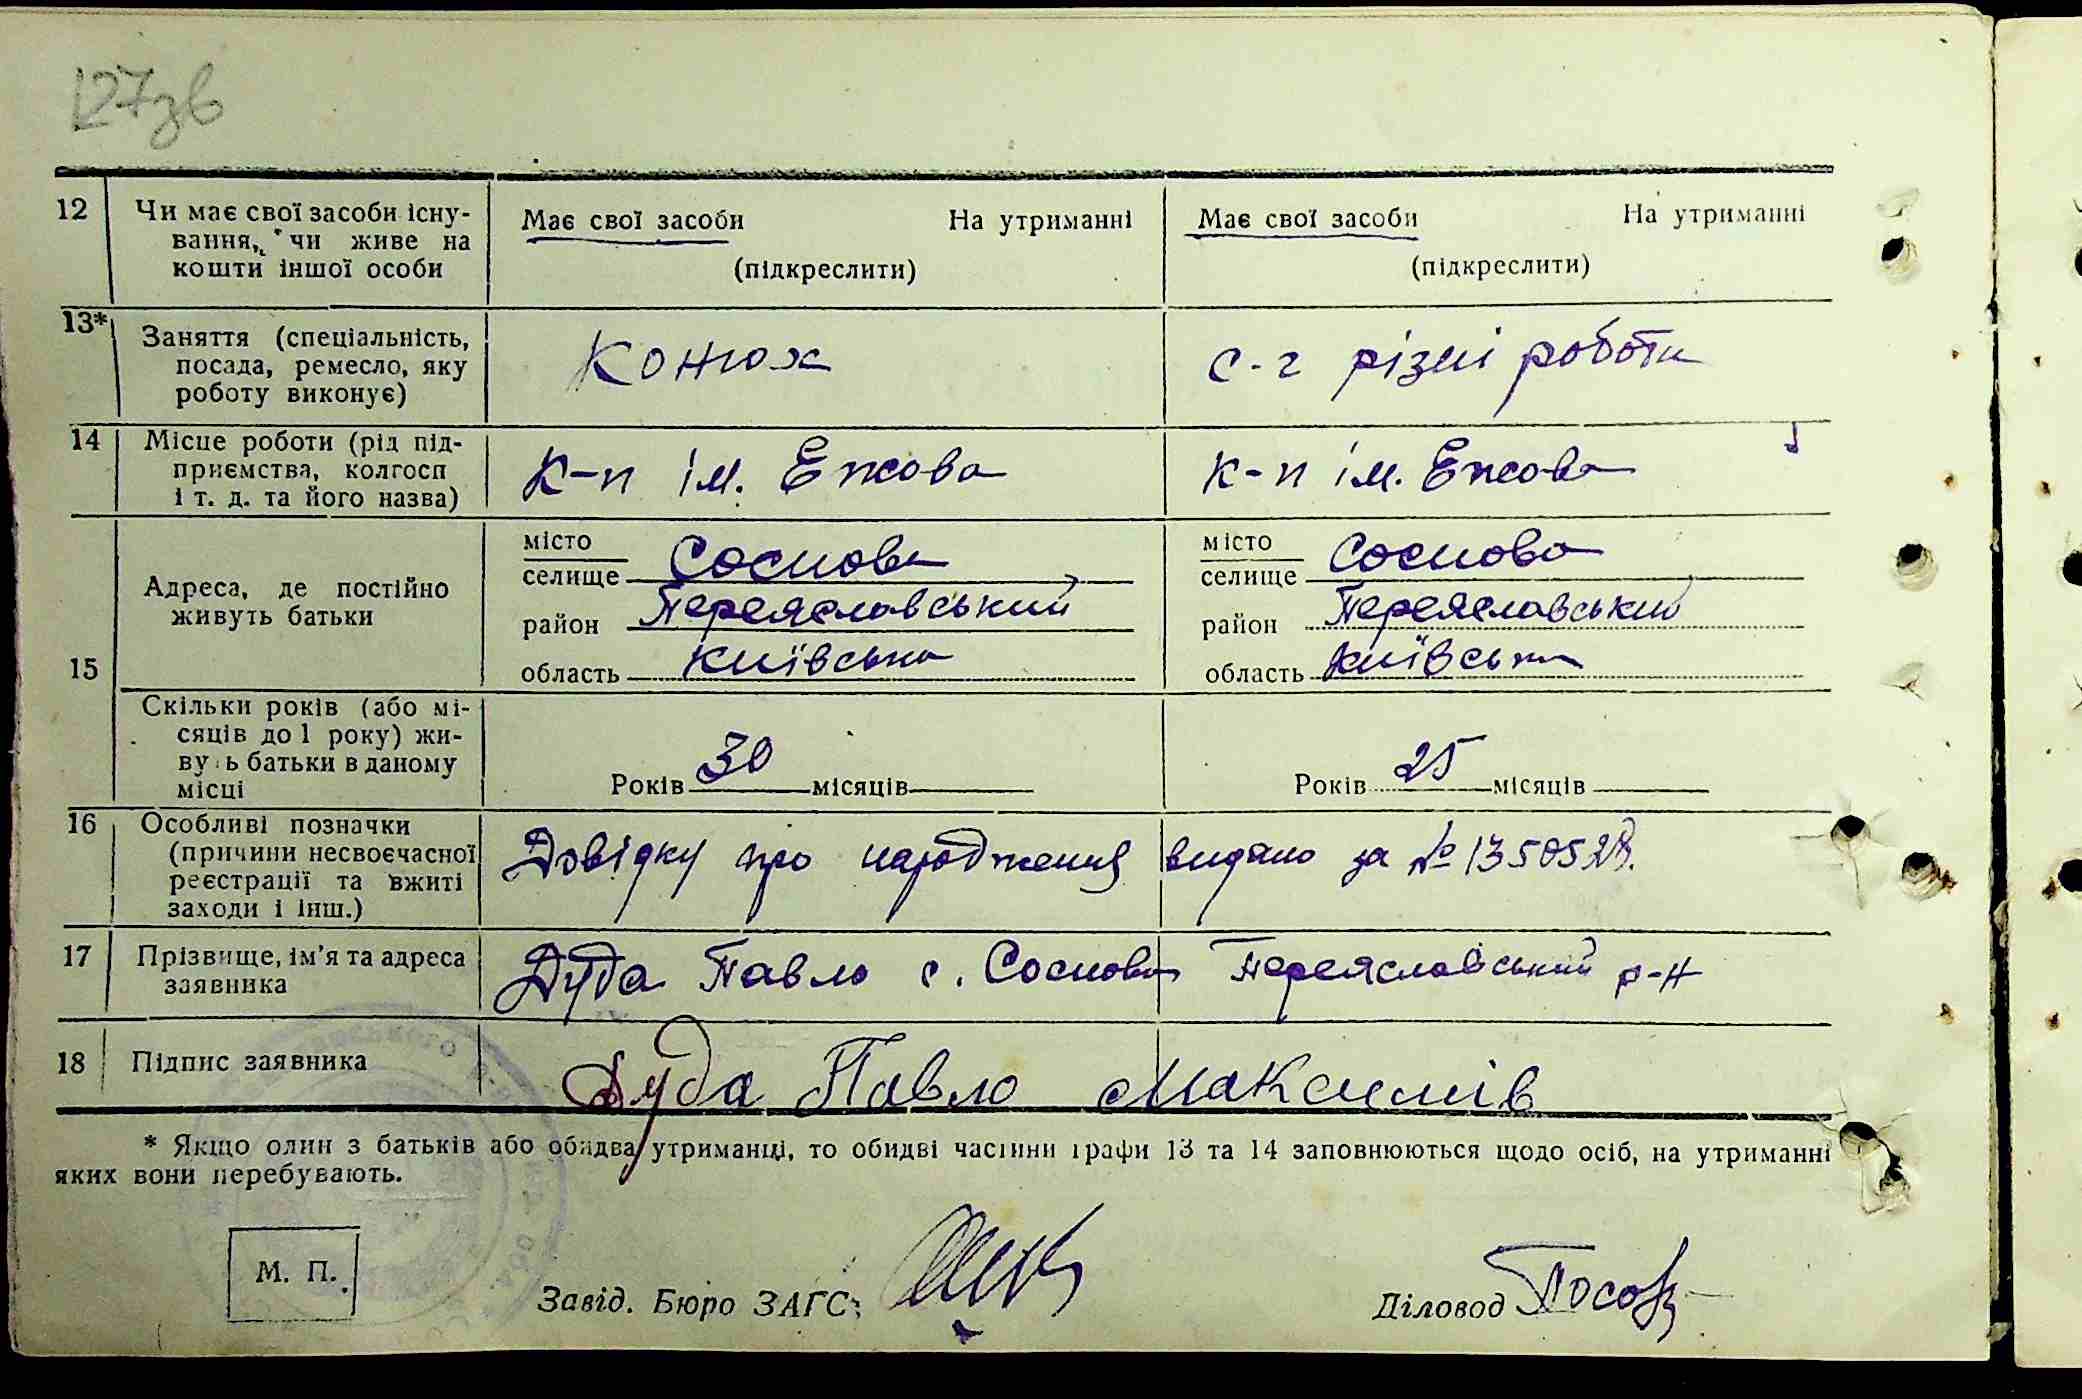 127зв
12 Чи має свої засоби існу-
вання, чи живе на
кошти іншої особи
Має свої засоби На утриманні
(підкреслити)
Має свої засоби На утриманні
(підкреслити)
13* Заняття (спеціальність,
посада, ремесло, яку
роботу виконує)
Конюх
с-г різні роботи
14 Місце роботи (рід під-
приємства, колгосп
і т. д. та його назва)
К-п ім. Ежова
К-п ім. Ежова
15 Адреса, де постійно
живуть батьки
місто
селище Соснова
район Переяславський
область Київська
місто
селище Соснова
район Переяславський
область Київська
Скільки років (або мі-
сяців до 1 року) жи-
ву ь батьки в даному
місці
Років 30 місяців
Років 25 місяців
16 Особливі позначки
(причини несвоєчасної
реєстрації та вжиті
заходи і інш.)
Довідку про народження видано за №
17 Прізвище, ім'я та адреса
заявника
Дуда Павло с. Соснова Переяславський р-н
18 Підпис заявника
Дуда Павло Максимів
* Якщо один з батьків або обидва утриманці, то обидві частини графи 13 та 14 заповнюються щодо осіб, на утриманні
яких вони перебувають.
М. П.
Завід. Бюро ЗАГС:
Діловод